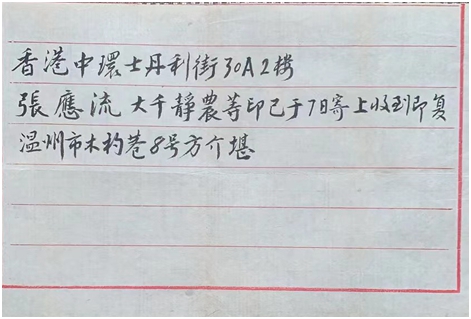 香港中環士丹利街30A2楼
張應流 大千靜農等印已于7日寄上收到即复
温州市木杓巷8号方介堪